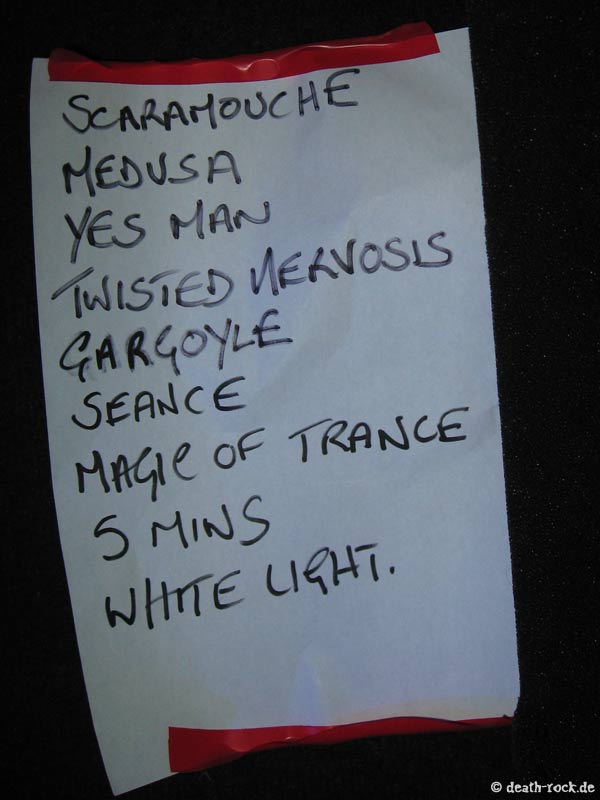 SCARAMOUCHE
MEDUSA
YES MAN
TWISTED NERVOSIS
GARGOYLE
SEANCE
MAGIC OF TRANCE
5 MINS
WHITE LIGHT.
© death-rock.de